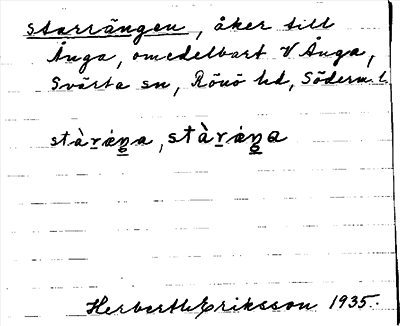 Starrängen, åker till
Ånga, omedelbart V Ånga,
Svärta sn, Rönö hd, Söderm. l.
Herbert Eriksson 1935.